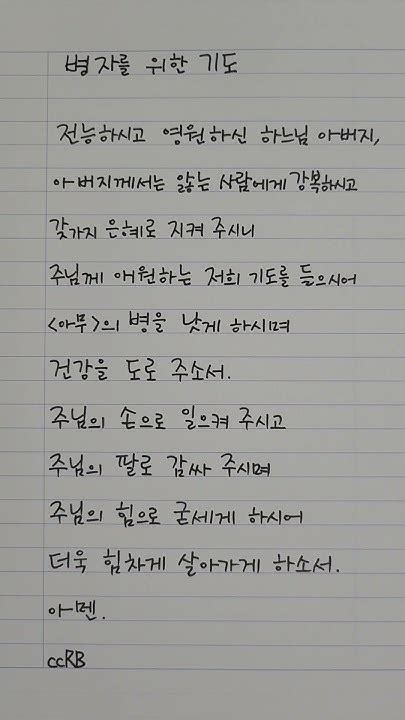 병자를 위한 기도
전능하시고 영원하신 하느님 아버지,
아버지께서는 앓는 사람에게 강복하시고
갖가지 은혜로 지켜 주시니
주님께 애원하는 저희 기도를 들으시어
<아무>의 병을 낫게 하시며
건강을 도로 주소서.
주님의 손으로 일으켜 주시고
주님의 팔로 감싸 주시며
주님의 힘으로 굳세게 하시어
더욱 힘차게 살아가게 하소서.
아멘.
ccRB